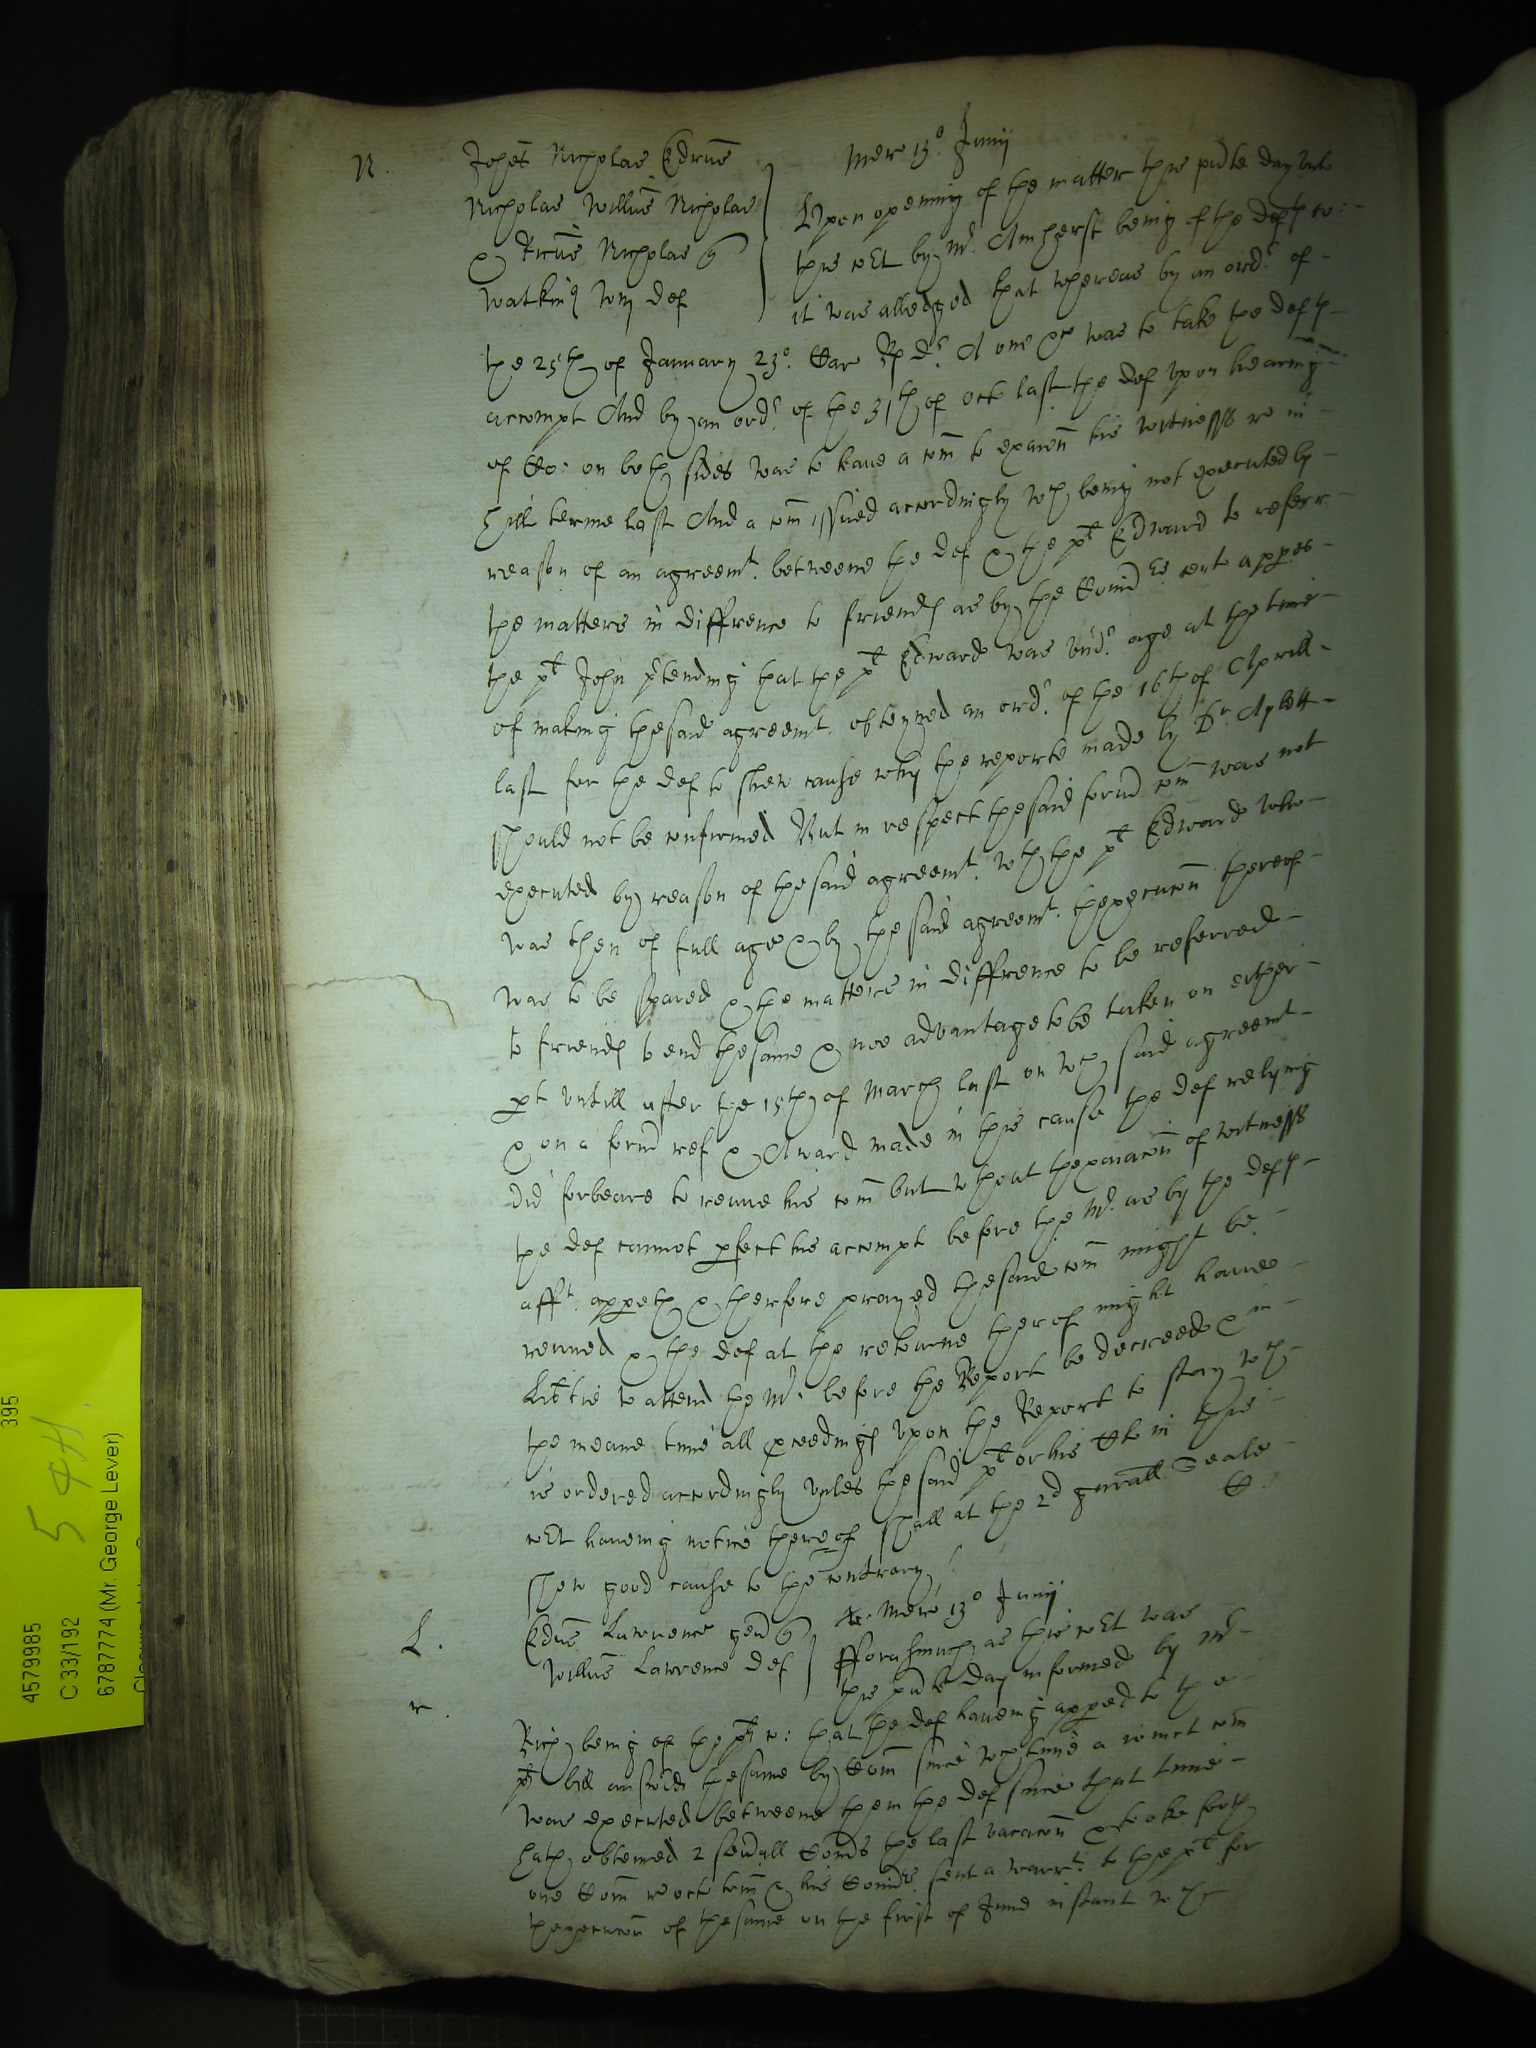 N.
Johes Nicholas Edrus
Nicholas Willus Nicholas
& Ricus Nicholas q
Watkins Wm def
Mer 15º Junij
Upon opening of the matter this pnte day unto
this cort by Mr Amherst being of the defts co:
it was alledged that whereas by an ordr of
the 25th of January 23º Car Rs dcs A one &c was to take the defts
accompt And by an ordr of the 31th of octo last the def upon heareing
of Co: on both sides was to have a com to examn his witnesses re in
Hill terme last And a com issued accordingly wch being not executed by
reason of an agreemt betweene the def & the pt Edward to referr
the matters in diffrence to friends as by the Comrs certe appes
the pt John ptending that the pt Edward was undr age at the time
of making the said agreemt obteyned an ordr of the 16th of Aprill
last for the def to shew cause why the reporte made by Dr Aylett
should not be confirmed But in respect the said formr com was not
executed by reason of the said agreemt wth the pt Edward who
was then of full age & by the said agreemt thexecucon thereof
was to be spared & the matters in diffrence to be referred
to friends to end the same & noe advantage to be taken on either
pt untill after the 15th of March last on wch said agreemt
& on a formr ref & Award made in this cause the def relying
did forbeare to renue his com but wthout thexaiacon of witnesses
the def cannot pfect his accompt before the Mr as by the defts
afft appeth & therfore prayed the said com might be
renued & the def at the retourne therof might have
libtie to attend the Mr before the Report be decreed & in
the meane time all pceedings upon the Report to stay wch
is ordered accordingly unles the said pt or his Clo in this
cort haveing notice thereof shall at the 2d genrall Seale
shew good cause to the contrary
L.
Edrus Lawrence gen q
Willus Lawrence def
Mer 13º Junij
r.
fforasmuch as this cort was
this pnte day informed by Mr
Rich being of the pts co: that the def haveing apped to the
pts bill answered the same by Com since wch time a ioinct com
was executed betweene them the def since that time
hath obteined 2 sevall Coms the last vacacon & tooke forth
one Com re octo trin & his Comrs sent a warrt to the pt for
thexecucon of the same on the first of June instant wch
4579985
C 33/192
6787774 (Mr. George Lever)
395